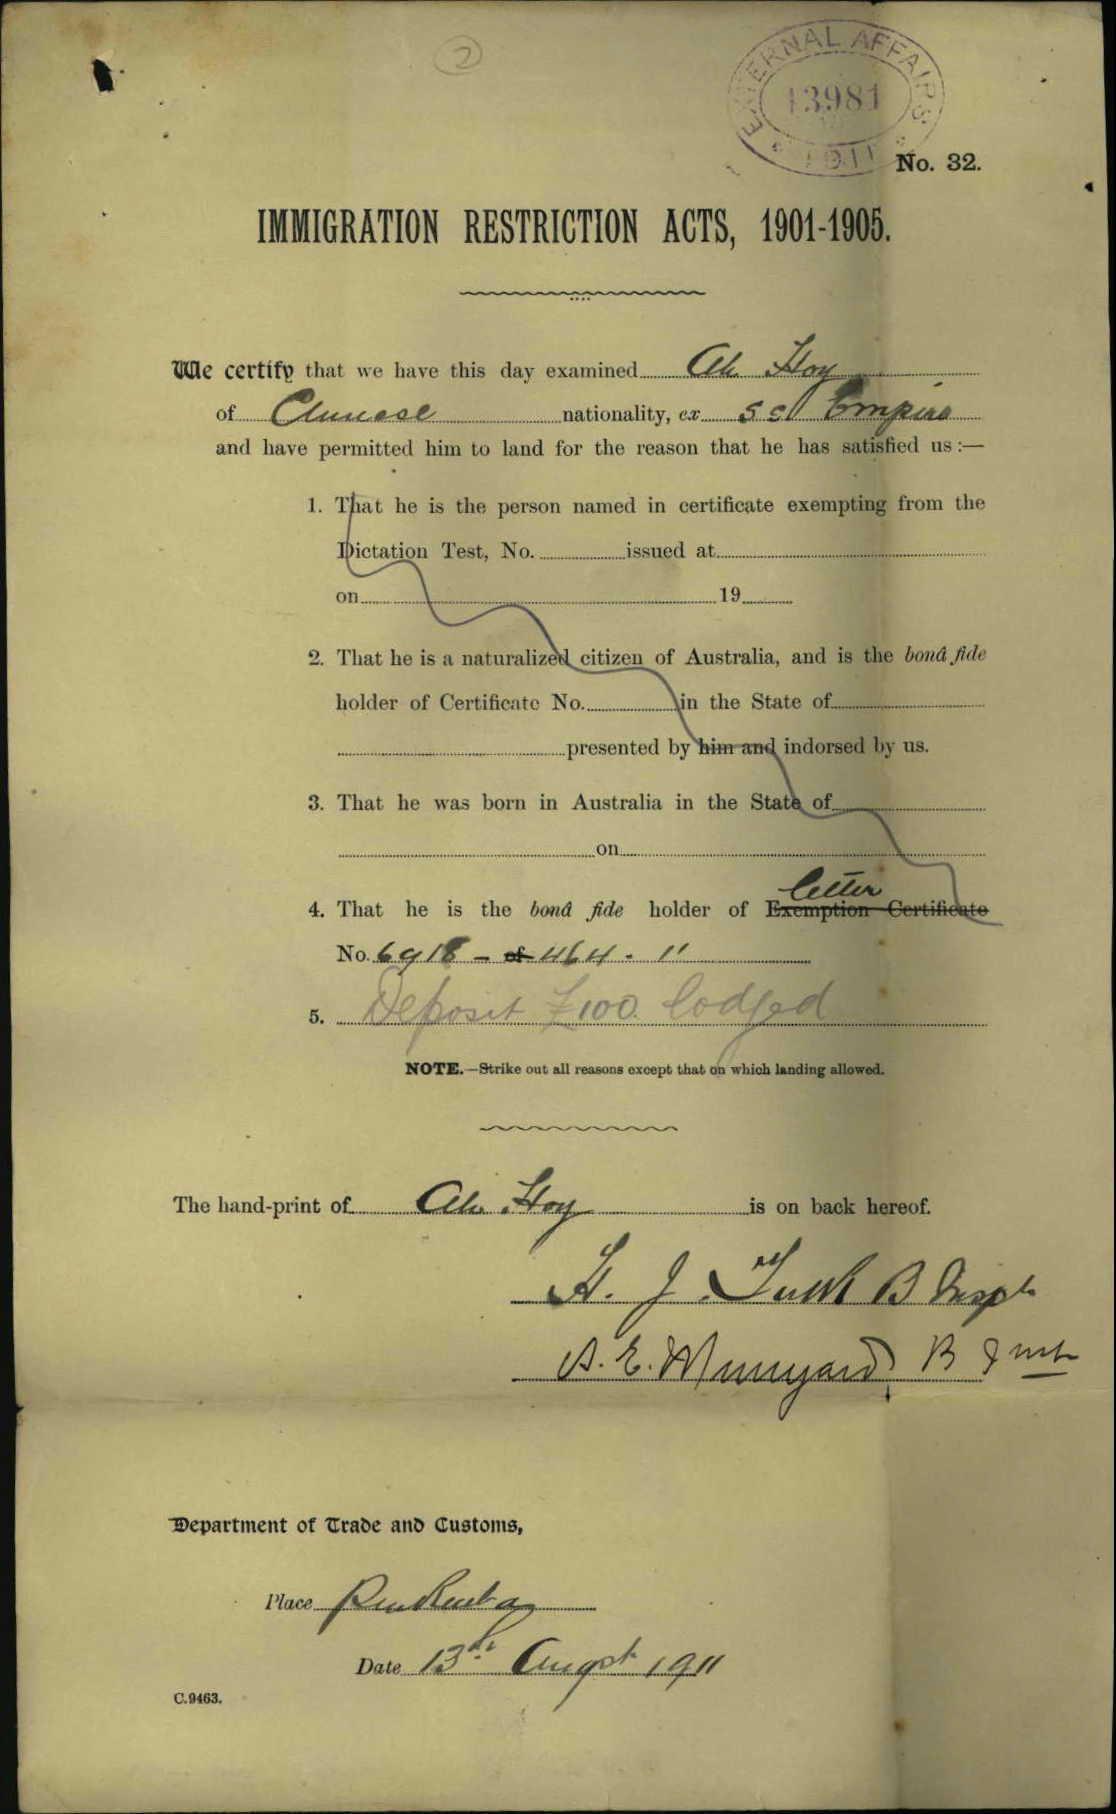 2
EXTERNAL AFFAIRS
13981
1911
No. 32.
IMMIGRATION RESTRICTION ACTS, 1901-1905.
We certify that we have this day examined Ah Hoy
of Chinese nationality, ex SS Empire
and have permitted him to land for the reason that he has satisfied us:—
1. That he is the person named in certificate exempting from the
Dictation Test, No. issued at
on 19
2. That he is a naturalized citizen of Australia, and is the bonâ fide
holder of Certificate No. in the State of
presented by him and indorsed by us.
3. That he was born in Australia in the State of
on
letter
4. That he is the bonâ fide holder of Exemption Certificate
No. 6918 - of 464 - 11
5. Deposit £100 lodged
NOTE.—Strike out all reasons except that on which landing allowed.
The hand-print of Ah Hoy is on back hereof.
H. J. B Insptr
A. E. Munyard B Inst
Department of Trade and Customs,
Place Pinkenba
Date 13th Augst 1911
C.9463.